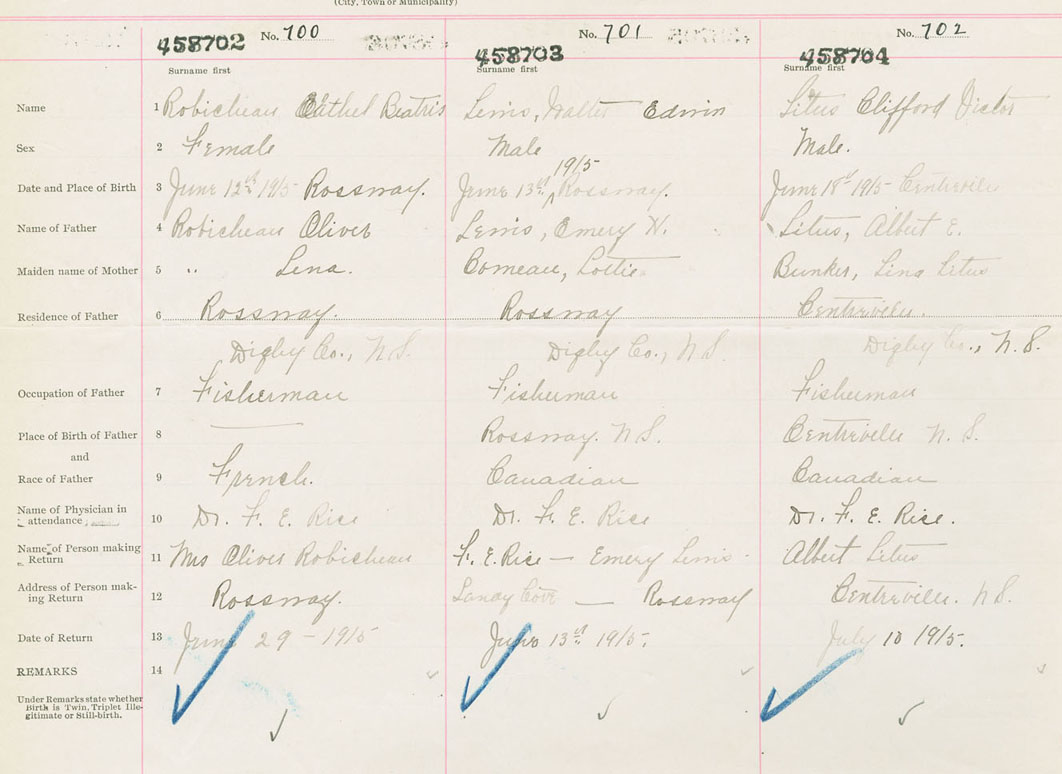 (City, Town or Municipality)
No. 700 No. 701 No. 702
458702 458703 458704
Surname first Surname first Surname first
Name 1 Robicheau Eathel Beatris Lewis, Walter Edwin Titus Clifford Victor
Sex 2 Female Male Male.
1915
Date and Place of Birth 3 June 12th 1915 Rossway. June 13th Rossway. June 18th 1915 Centreville
Name of Father 4 Robicheau Oliver Lewis, Emery W. Titus, Albert E.
Maiden name of Mother 5 " Lena. Comeau, Lottie Bunker, Lina Titus
Residence of Father 6 Rossway. Rossway Centreville.
Digby Co., N.S. Digby Co., N.S. Digby Co., N.S.
Occupation of Father 7 Fisherman Fisherman Fisherman
Place of Birth of Father 8 Rossway. N.S. Centreville N.S.
and
Race of Father 9 French. Canadian Canadian
Name of Physician in
attendance, 10 Dr. F. E. Rice Dr. F. E. Rice Dr. F. E. Rice.
Name of Person making
Return 11 Mrs Oliver Robicheau F. E. Rice — Emery Lewis Albert Titus
Address of Person mak-
ing Return 12 Rossway. Sandy Cove — Rossway Centreville. N.S.
Date of Return 13 June 29 - 1915 June 13th 1915. July 10 1915.
REMARKS 14
Under Remarks state whether
Birth is Twin, Triplet Ille-
gitimate or Still-birth.